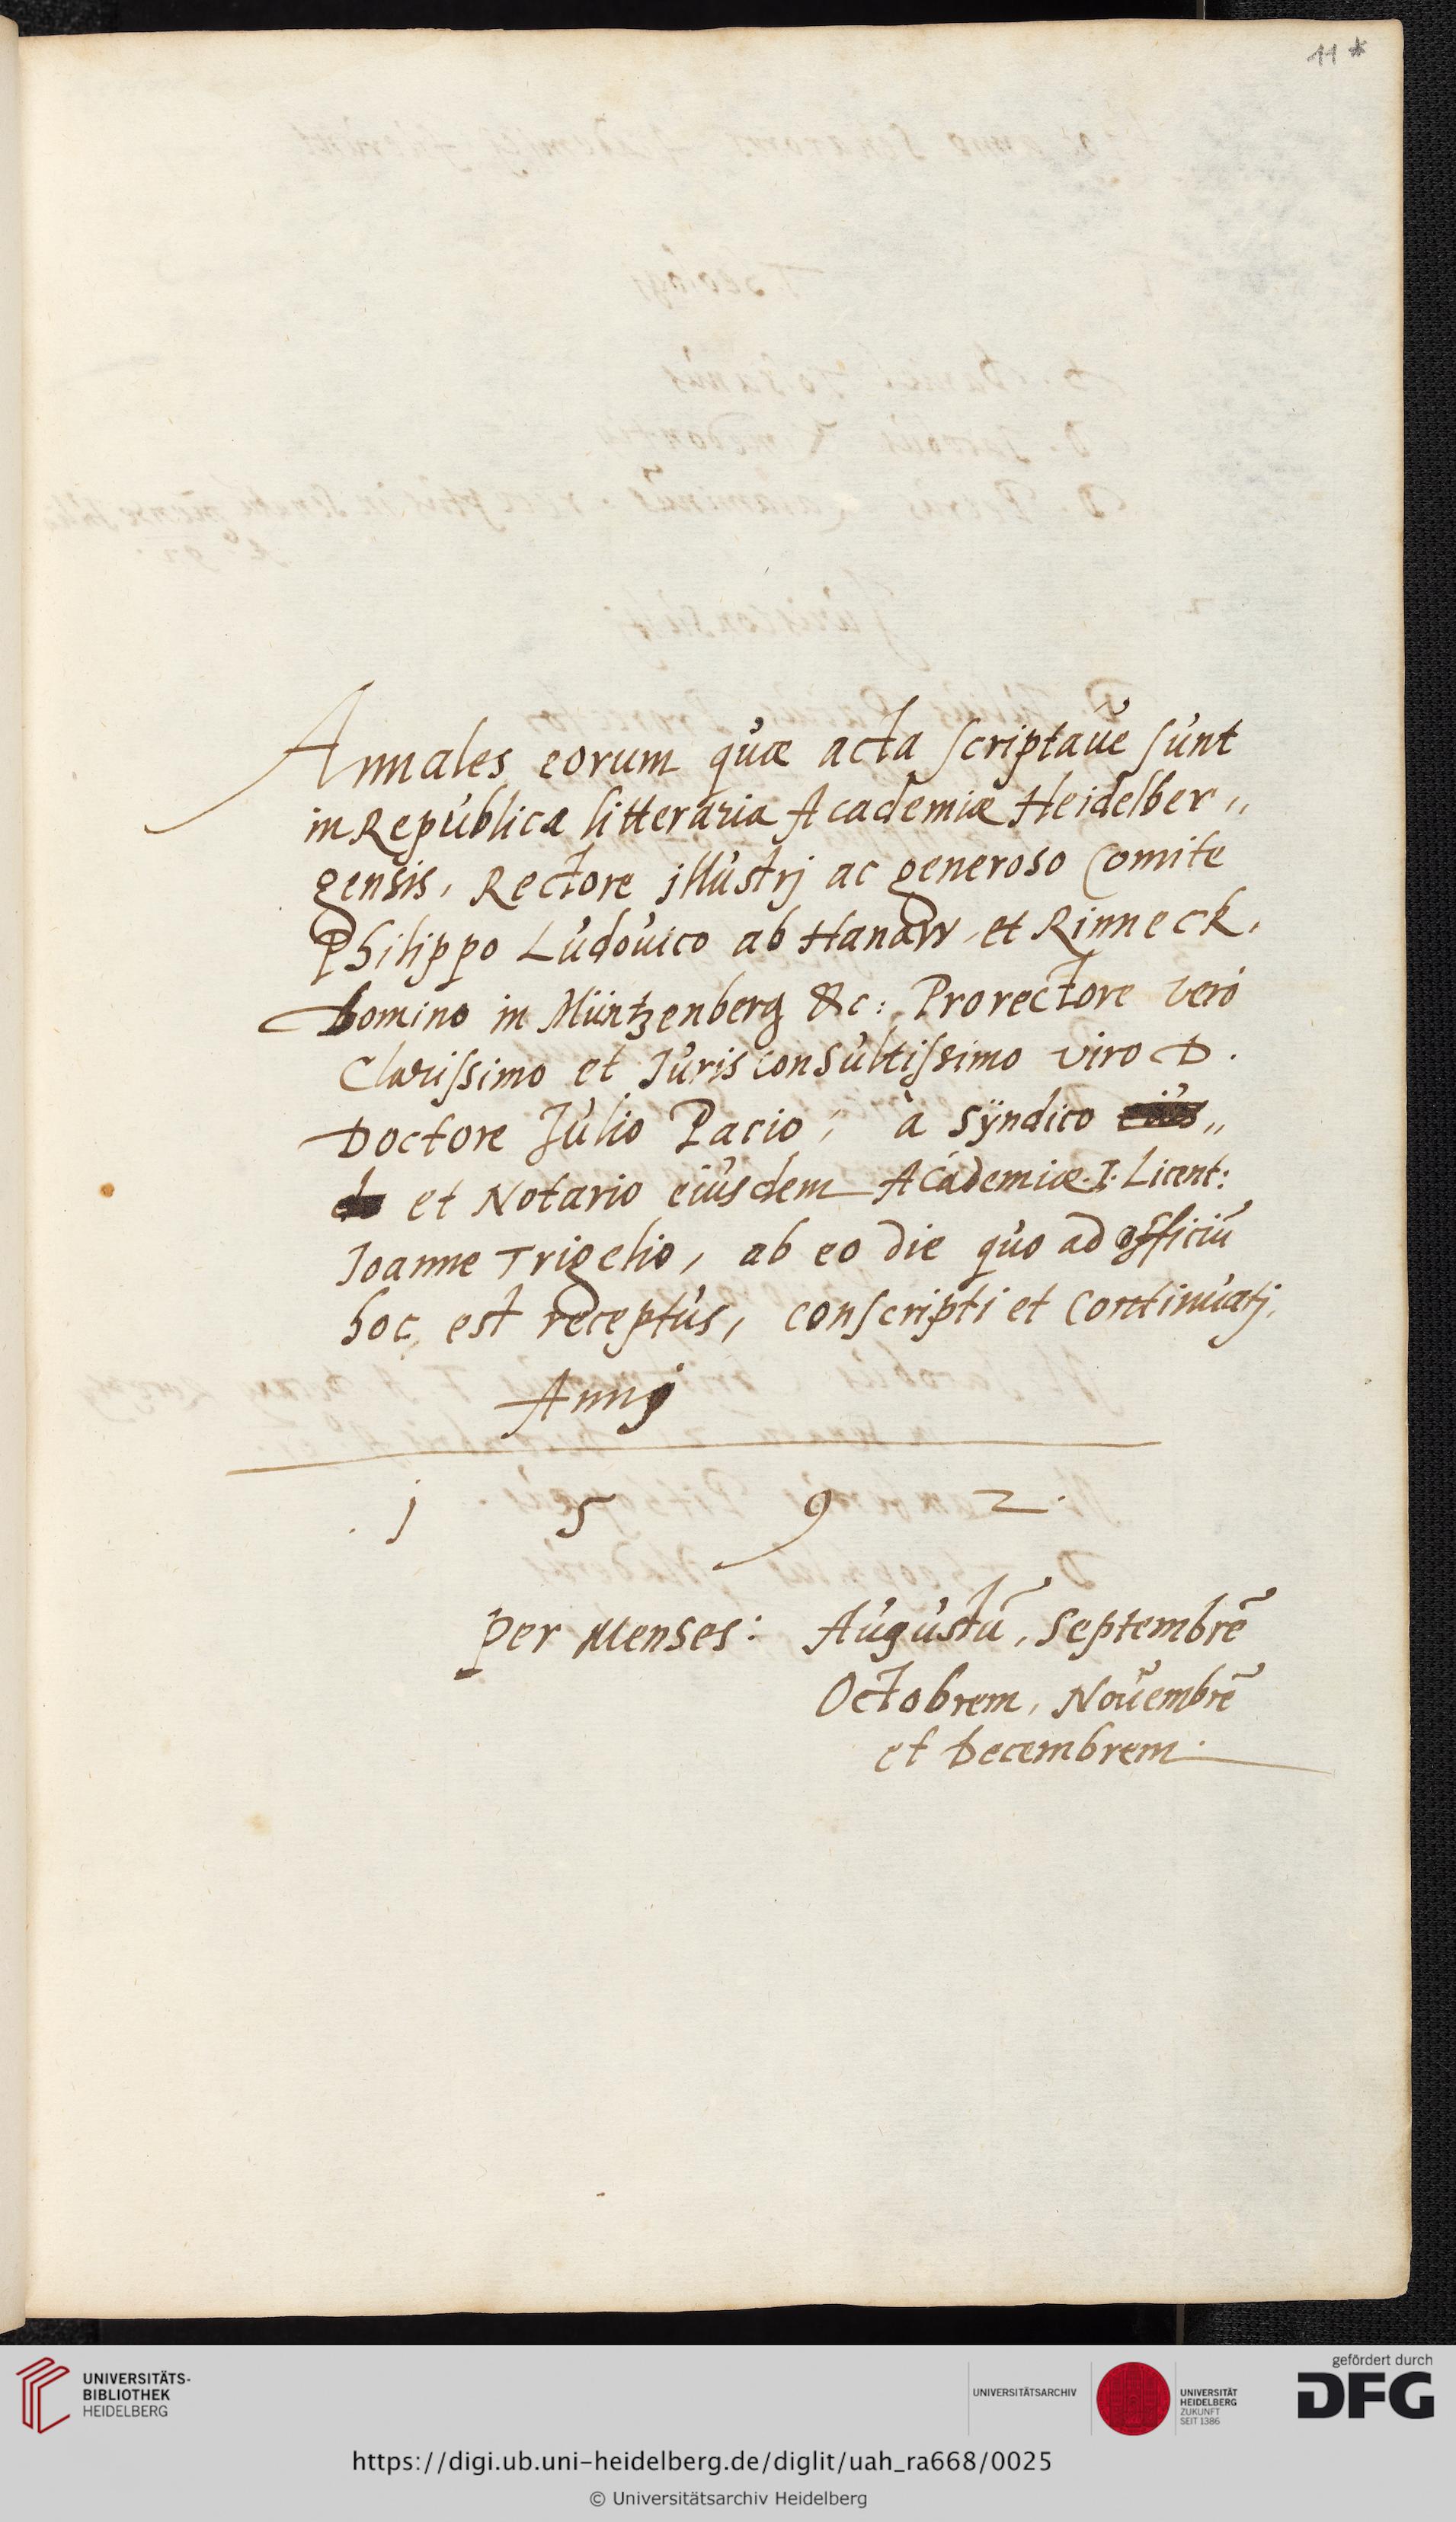 11*
Annales eorum quæ acta scriptaūe sunt
in Republica litteraria Academiæ Heidelber„
gensis, Rectore jllustrj ac generoso Comite
Philippo Ludouico ab Hanaw et Rinneck,
Domino in Müntzenberg &c: Prorectore verò
Clarissimo et Jurisconsultissimo viro D.
Doctore Julio Pacio, à Sÿndico eius„
de et Notario eiusdem Academiæ I. Licent:
Joanne Trigelio, ab eo die quo ad officiū
hoc est receptus, conscripti et continuatj.
Annj
1 5 9 2.
Per Menses: Augustū, Septembrē
Octobrem, Nouembrē
et Decembrem.
UNIVERSITÄTS-
BIBLIOTHEK
HEIDELBERG
UNIVERSITÄTSARCHIV
UNIVERSITÄT
HEIDELBERG
ZUKUNFT
SEIT 1386
gefördert durch
DFG
https://digi.ub.uni-heidelberg.de/diglit/uah_ra668/0025
© Universitätsarchiv Heidelberg